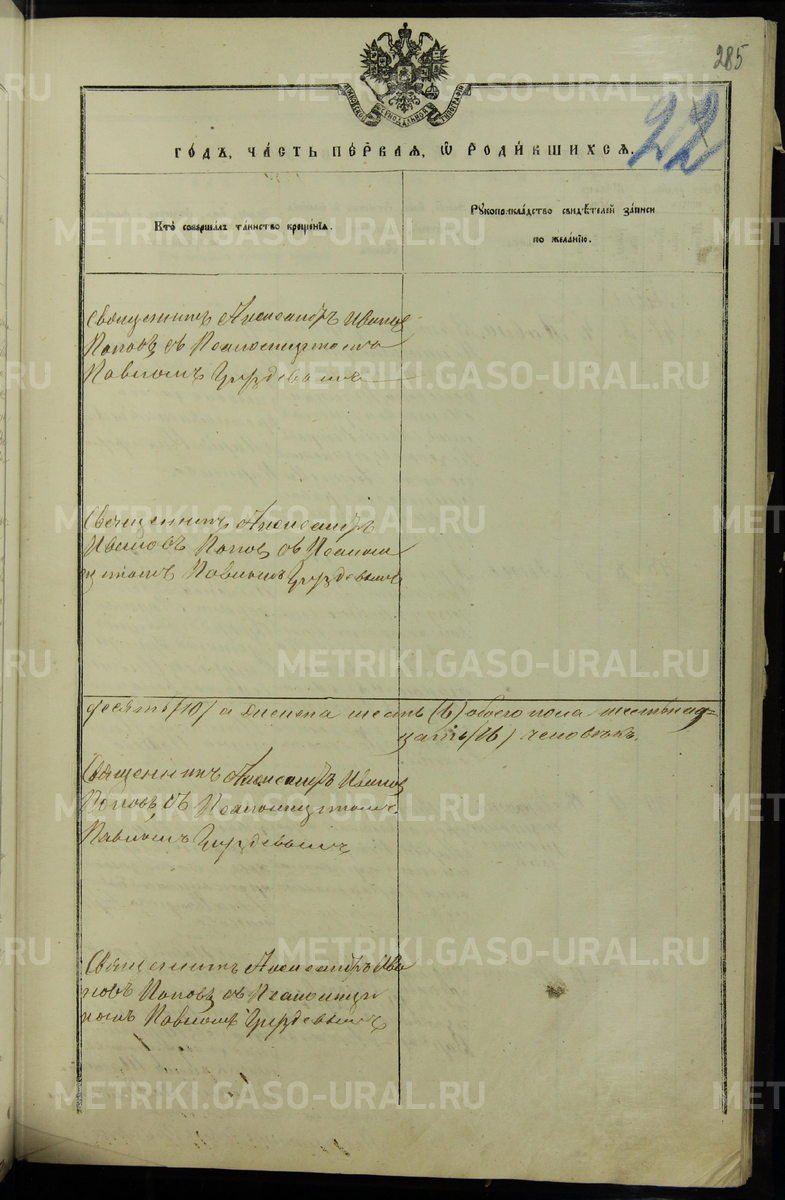 285
22
МОСКОВСКОЙ СѴНОДАЛЬНОЙ ТИПОГРАФІИ
ГО́ДЪ, ЧА́СТЬ ПЕ́РВАѦ, Ѡ҆ РОДИ́ВШИХСѦ.
Кто̀ соверша́лъ та́инство креще́нїѧ.
Рꙋкоприкла́дство свидѣ́телей за́писи
по жела́нїю.
Священникъ Александръ Иванов
Поповъ съ Псаломщикомъ
Павломъ
Священникъ Александръ
Ивановъ Попов съ Псалом
щикомъ Павломъ
десять (10) а женска шесть (6) обоего пола шестьнад=
цать (16) человѣкъ.
Священникъ Александръ Иванов
Поповъ съ Псаломщикомъ
Павломъ
Священникъ Александръ Ива
новъ Поповъ съ Псаломщи
комъ Павломъ
METRIKI.GASO-URAL.RU